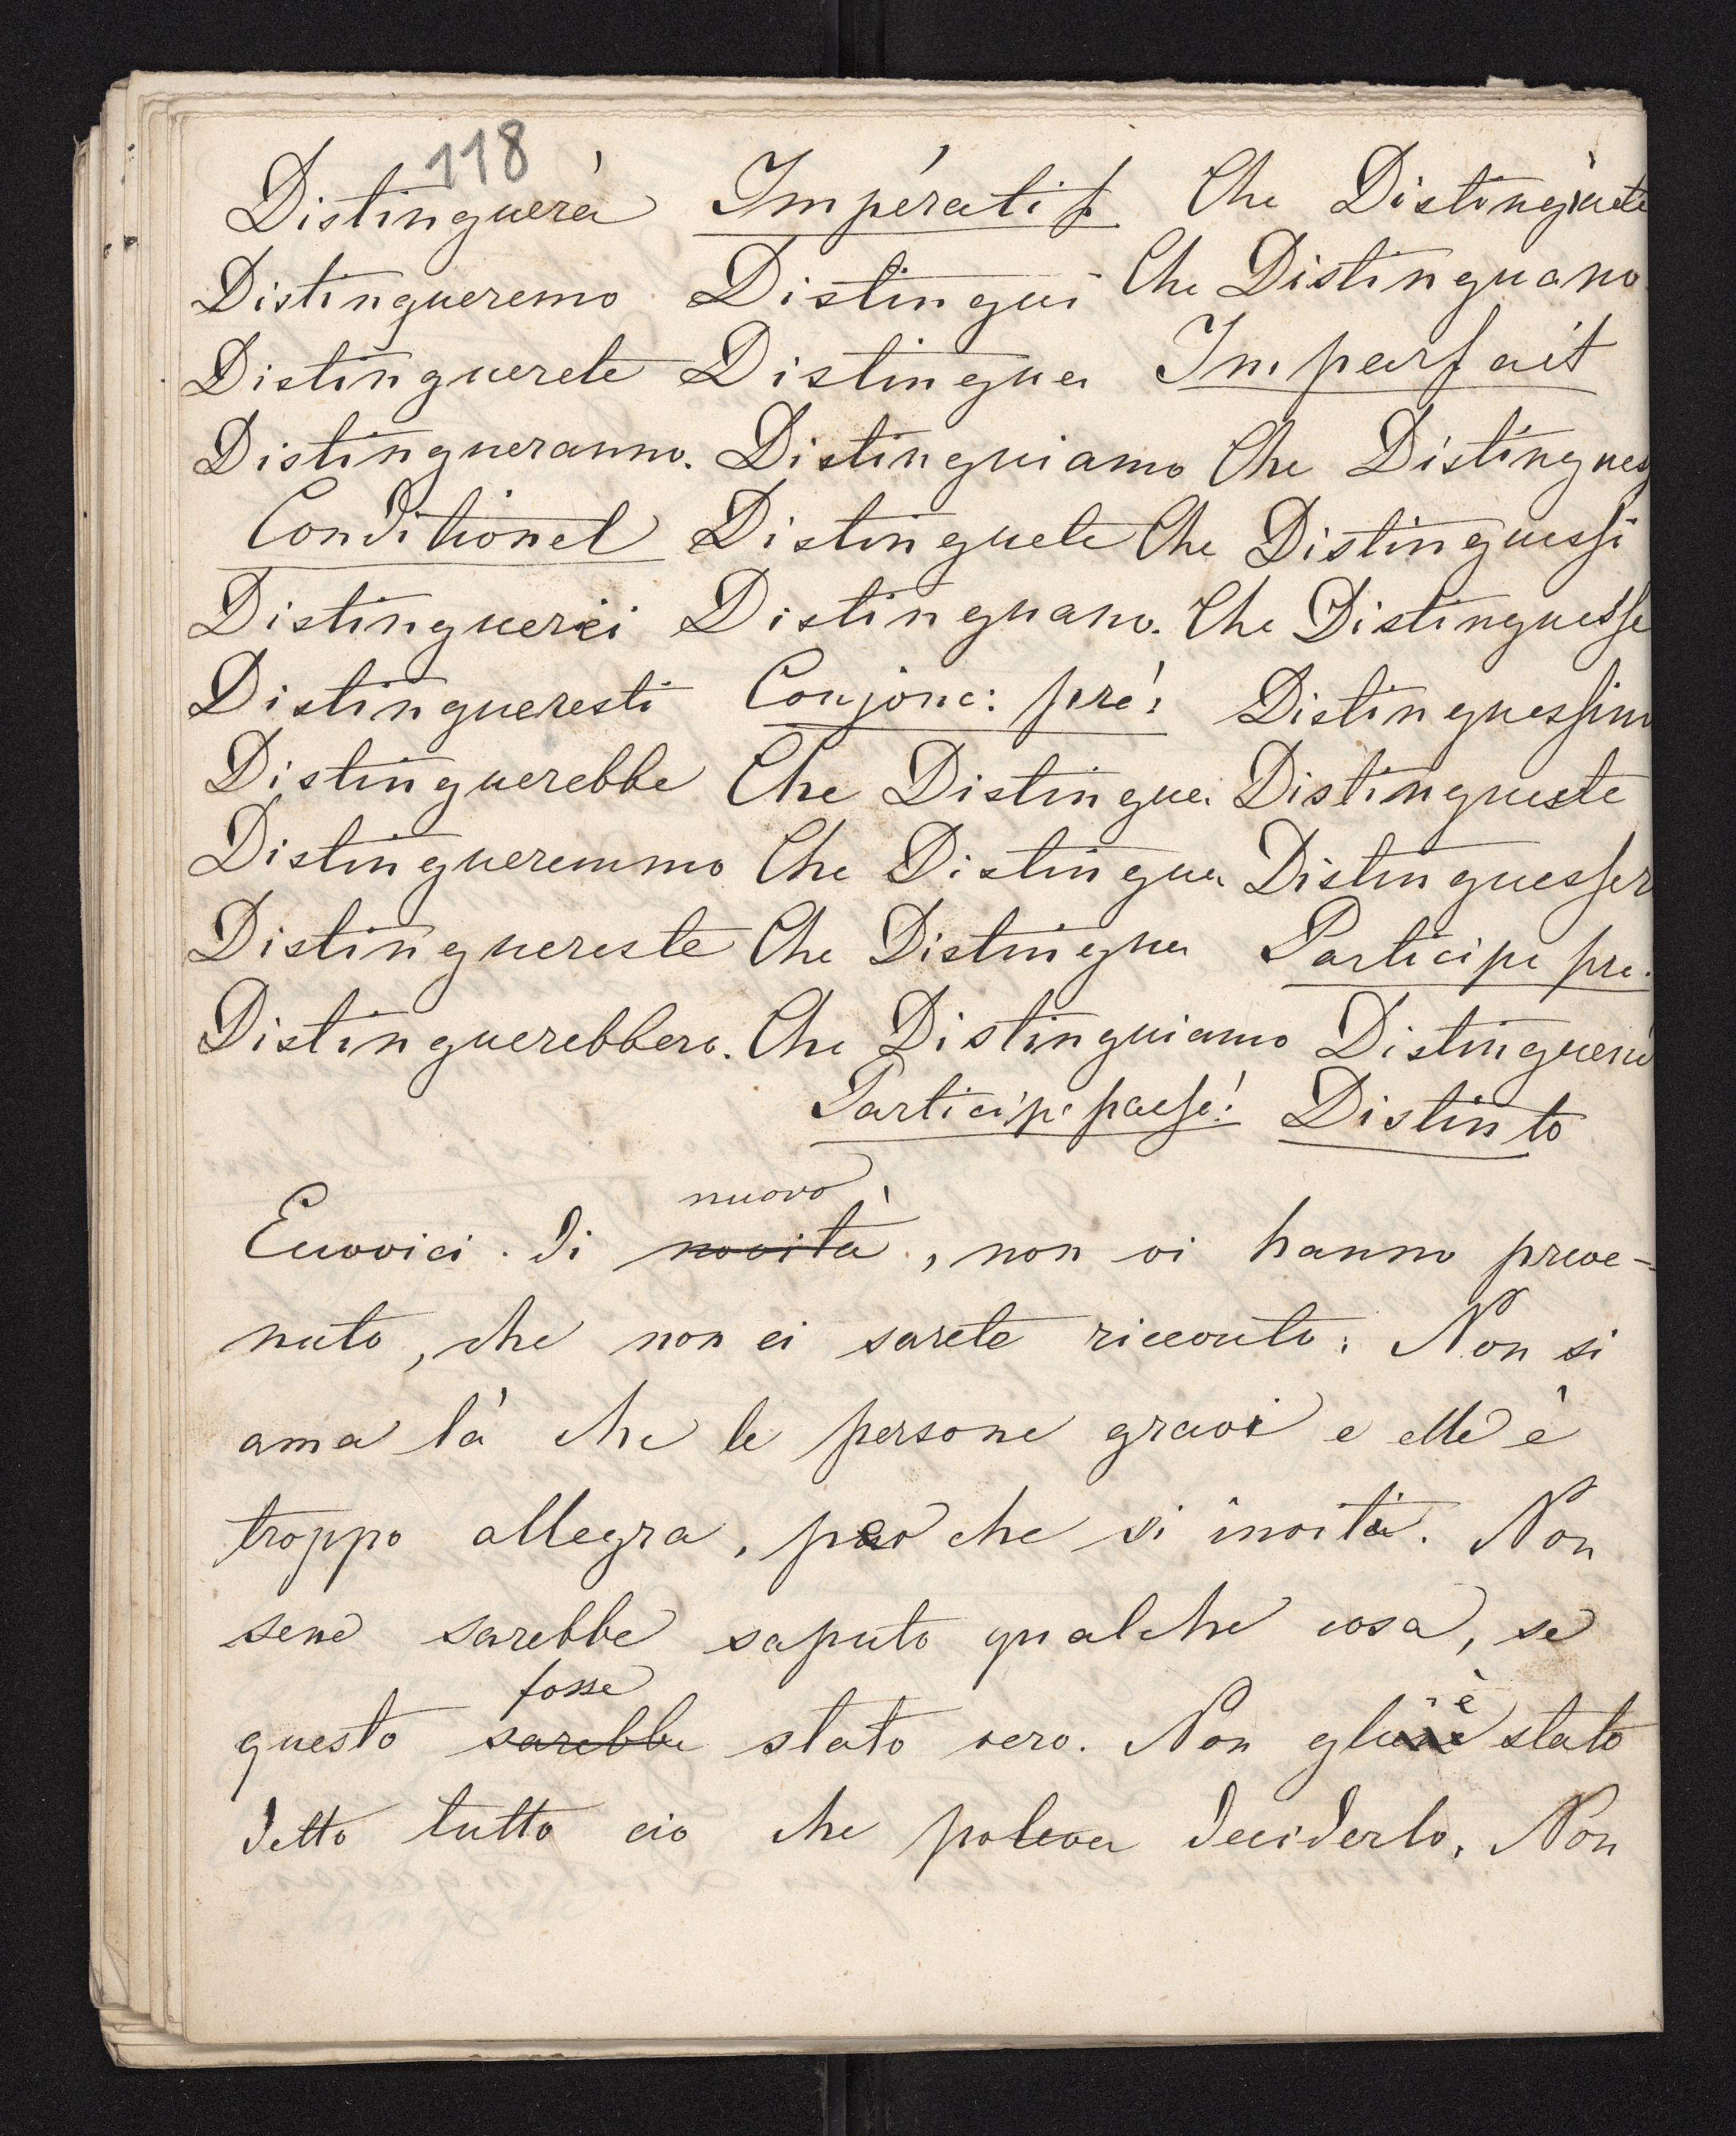 118
Distinguerà Impératif Che Distinguiate
Distingueremo Distingui Che Distinguano
Distinguerete Distingua Imparfait
Distingueranno. Distinguiamo Che Distingues
Conditionel Distinguete Che Distinguessi
Distinguerei Distinguano. Che Distinguesse
Distingueresti Conjonc: pré: Distinguessimo
Distinguerebbe Che Distingua Distingueste
Distingueremmo Che Distingua Distinguesser
Distinguereste Che Distingua Participe pre.
Distinguerebbero. Che Distinguiamo Distinguen
Participe passé: Distinto
nuovo
Euvvici. di novità, non vi hanno preve-
nuto, che non ci sarete ricevuto: Non si
ama là che le persone gravi e elle è
troppo allegra, perchè si invità. Non
sene sarebbe saputo qualche cosa, se
fosse
questo sarebbe stato vero. Non è stato
detto tutto cio che poteva deciderlo. Non